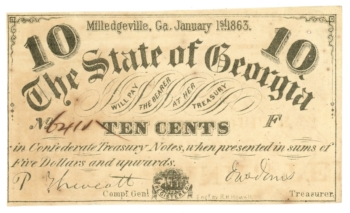 Milledgeville, Ga. January 1st 1863.
10 10
The State of Georgia
WILL PAY THE BEARER AT HER TREASURY
No F
TEN CENTS
in Confederate Treasury Notes, when presented in sums of
Five Dollars and upwards.
P
Compt Genl Treasurer.